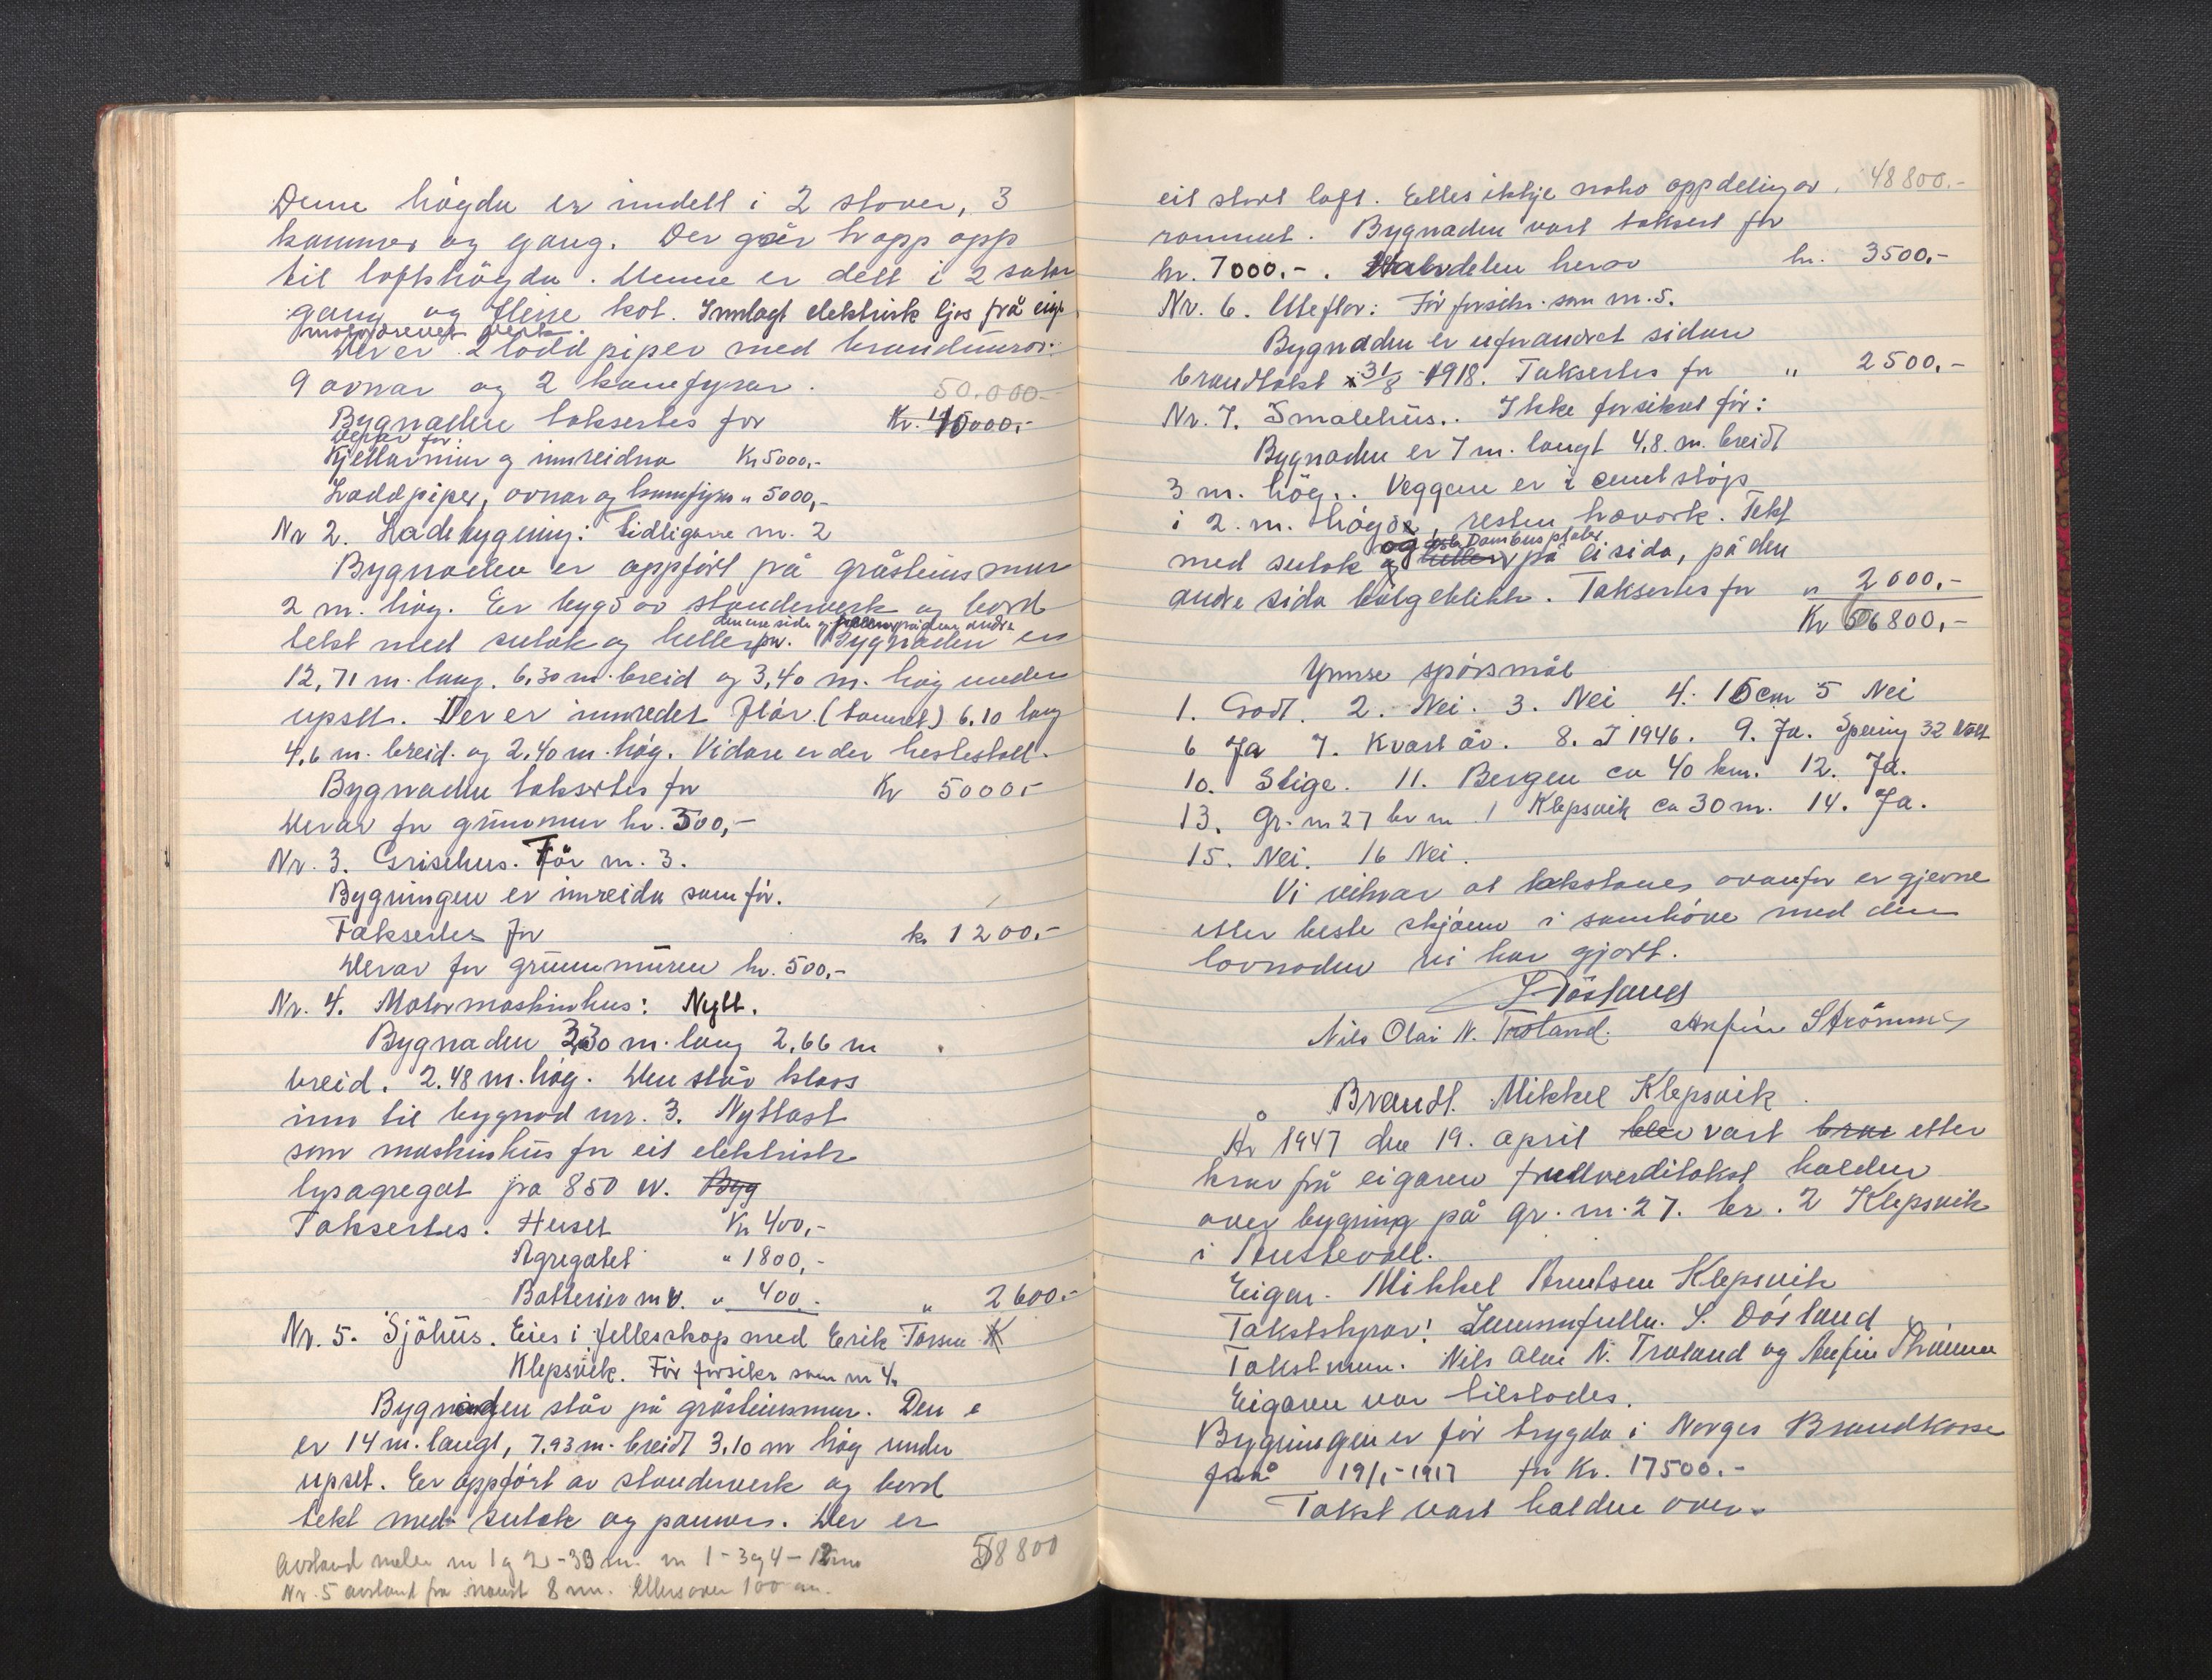 Denne högda er inndelt i 2 stover, 3
kammer og gang. Der går trapp opp
til loftshögda. Denne er delt i 2 salar
gang og fleire kot. Innlagt elektrisk ljos frå eige
motordrevet verk.
Der er 2 lødd piper med brandmurar.
9 omnar og 2 komfyrar. 50.000.-
Bygnaden taksertes for Kr. 40000,-
Derav for:
Kjellarmur og innreidna Kr 5000,-
Lødd piper, ovnar og komfyrar " 5000,-
Nr 2. Ladebygning: Tidligare nr. 2
Bygnaden er oppfört på gråsteinsmur
2 m. hög. Er bygd av standerverk og bord
tekt med sutak og heller på den ene side og på den andre. Bygnaden er
12,71 m. lang. 6,30 m. breid og 3,40 m. hög under
upset. Der er innredet flór (tømret) 6.10 lang
4,6 m. breid. og 2,40 m. hög. Vidare er der hestestall.
Bygnaden taksertes for Kr 5000,-
Derav for grunnmur kr. 500,-
Nr. 3. Grisehus. För nr. 3.
Bygningen er innreida som för.
Taksertes for kr 1200.-
Derav for grunnmuren kr. 500,-
Nr. 4. Motormaskinhus: Nytt.
Bygnaden 3,30 m. lang 2,66 m
breid. 2.48 m. hög. Den står kloss
inn til bygnad nr. 3. Nyttast
som maskinhus for eit elektrisk
lysagregat på 850 W. Byg
Taksertes. Huset Kr 400,-
Agregatet " 1800,-
Batterier m.v. " 400.- " 2600.-
Nr. 5. Sjöhus. Eies i fellesskap med Erik Torsen K
Klepsvik. För forsikr som nr 4.
Bygnaden står på gråsteinsmur. Den e
er 14 m. langt, 7,93 m. breidt 3,10 m hög under
upset. Er oppfört av standerverk og bord
tekt med sutak og panner. Der er
58800
Avstand mellem nr 1 og 2 - 33 m. nr 1 - 3 og 4 - 12 m
Nr. 5 avstand fra naust 8 m. Ellers over 100 m.
eit stort loft. Elles ikkje noko oppdeling av 48800.-
rommet. Bygnaden vart taksert for
kr. 7000.-. Halvdelen herav kr. 3500,-
Nr. 6. Uteflor: För forsikr. som nr. 5.
Bygnaden er uforandret sidan
brandtakst 31/8 - 1918. Taksertes for " 2500,-
Nr. 7. Smalehus.. Ikke forsikret för:
Bygnaden er 7 m. langt 4,8. m. breidt
3 m. hög.. Veggene er i sement stöp
i 2. m. högde, resten trevork. Tekt
med sutak og heller på ei sida, på den
andre sida bölgeblikk. Taksertes for " 2000,-
Kr 56800,-
Ymse spörsmål
1. Godt. 2. Nei. 3. Nei 4. 15 cm 5 Nei
6 Ja 7. Kvart år. 8. I 1946. 9. Ja. Spening 32 Volt
10. Stige. 11. Bergen ca 40 km. 12. Ja.
13. Gr. nr 27 br nr 1 Klepsvik ca 30 m. 14. Ja.
15. Nei. 16 Nei.
Vi vitnar at takstane ovanfor er gjevne
etter beste skjönn i samhöve med den
lovnaden vi har gjort.
S. Dösland
Nils Olai N. Troland. Anfin Strömme
Brandt. Mikkel Klepsvik.
År 1947 den 19. april blev vart brar etter
krav frå eigaren fullverditakst halden
over bygning på gr. nr. 27. br. 2 Klepsvik
i Austevoll.
Eigar. Mikkel Arentsen Klepsvik
Takststyrar: Lensmannfullm. S. Dösland
Takstmenn. Nils Olai N. Troland og Anfin Strömme
Eigaren var tilstades.
Bygningen er för trygda i Norges Brandkasse
frå 19/1 - 1917 for Kr. 17500.-
Takst vart halden over.